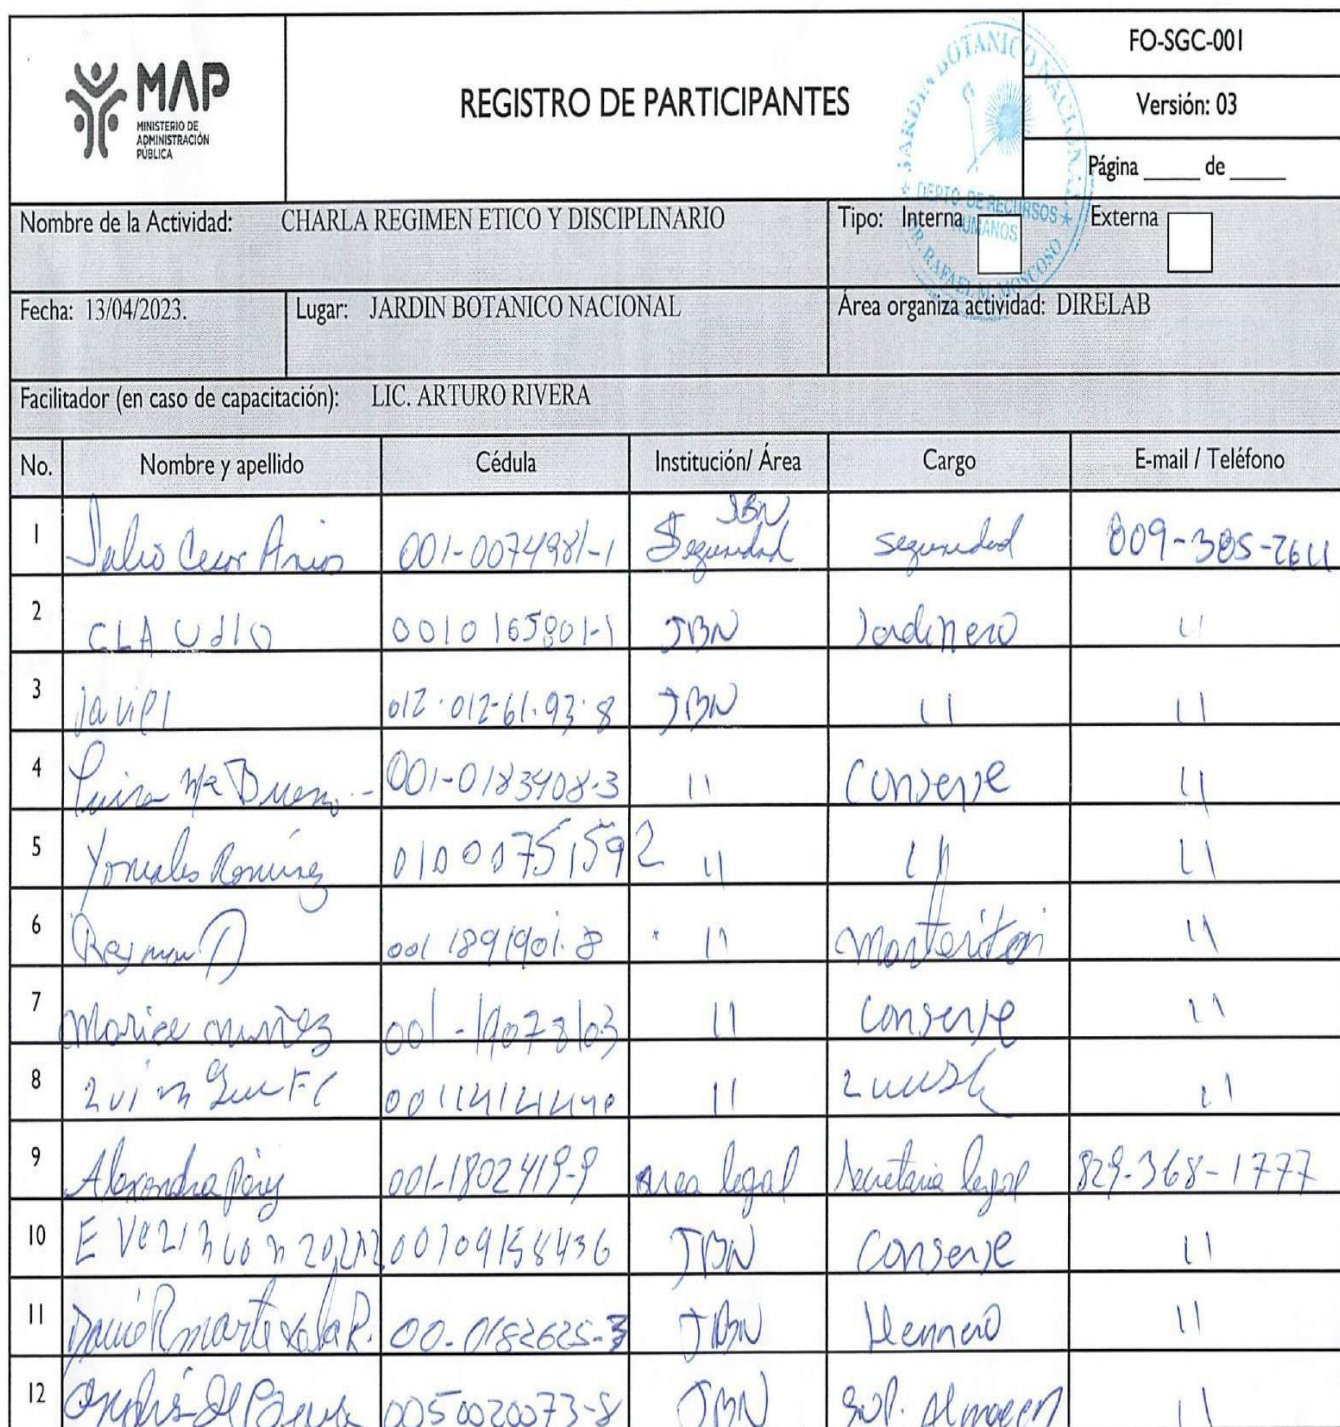 MAP
MINISTERIO DE
ADMINISTRACIÓN
PÚBLICA
REGISTRO DE PARTICIPANTES
FO-SGC-001
Versión: 03
Página _____ de _____
JARDIN BOTANICO NACIONAL
DEPTO. DE RECURSOS
HUMANOS
DR. RAFAEL M. MOSCOSO
Nombre de la Actividad: CHARLA REGIMEN ETICO Y DISCIPLINARIO Tipo: Interna Externa
Fecha: 13/04/2023. Lugar: JARDIN BOTANICO NACIONAL Área organiza actividad: DIRELAB
Facilitador (en caso de capacitación): LIC. ARTURO RIVERA
No. Nombre y apellido Cédula Institución/ Área Cargo E-mail / Teléfono
1 Julio Cesar Arias 001-0074981-1 JBN Seguridad seguridad 809-385-2611
2 CLAUdIO 0010165801-1 JBN Jardinero 11
3 Javier 012-012-61-93-8 JBN 11 11
4 Luisa Ma Bueno 001-0183408-3 11 Conserje 11
5 Ramirez 01000751592 11 11 11
6 001 1891901-8 11 11
7 nuñez 001-19078103 11 Conserje 11
8 11 11
9 Alexandra Pérez 001-1802419-9 area legal Secretaria legal 829-368-1777
10 00109158436 JBN Conserje 11
11 David R. 00-0182625-3 JBN Herrero 11
12 0050020073-8 JBN Sup. Almacen 11